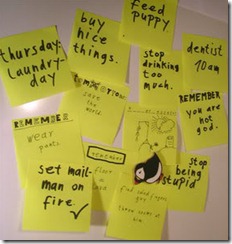 feed
puppy
buy
nice
things.
thursday-
laundry-
day
stop
drinking
too
much.
dentist
10am
tomorrow
save the
world.
REMEMBER
you are
not
god.
REMEMBER
wear
pants
remember
stop
being
stupid
set mail-
man on
fire.